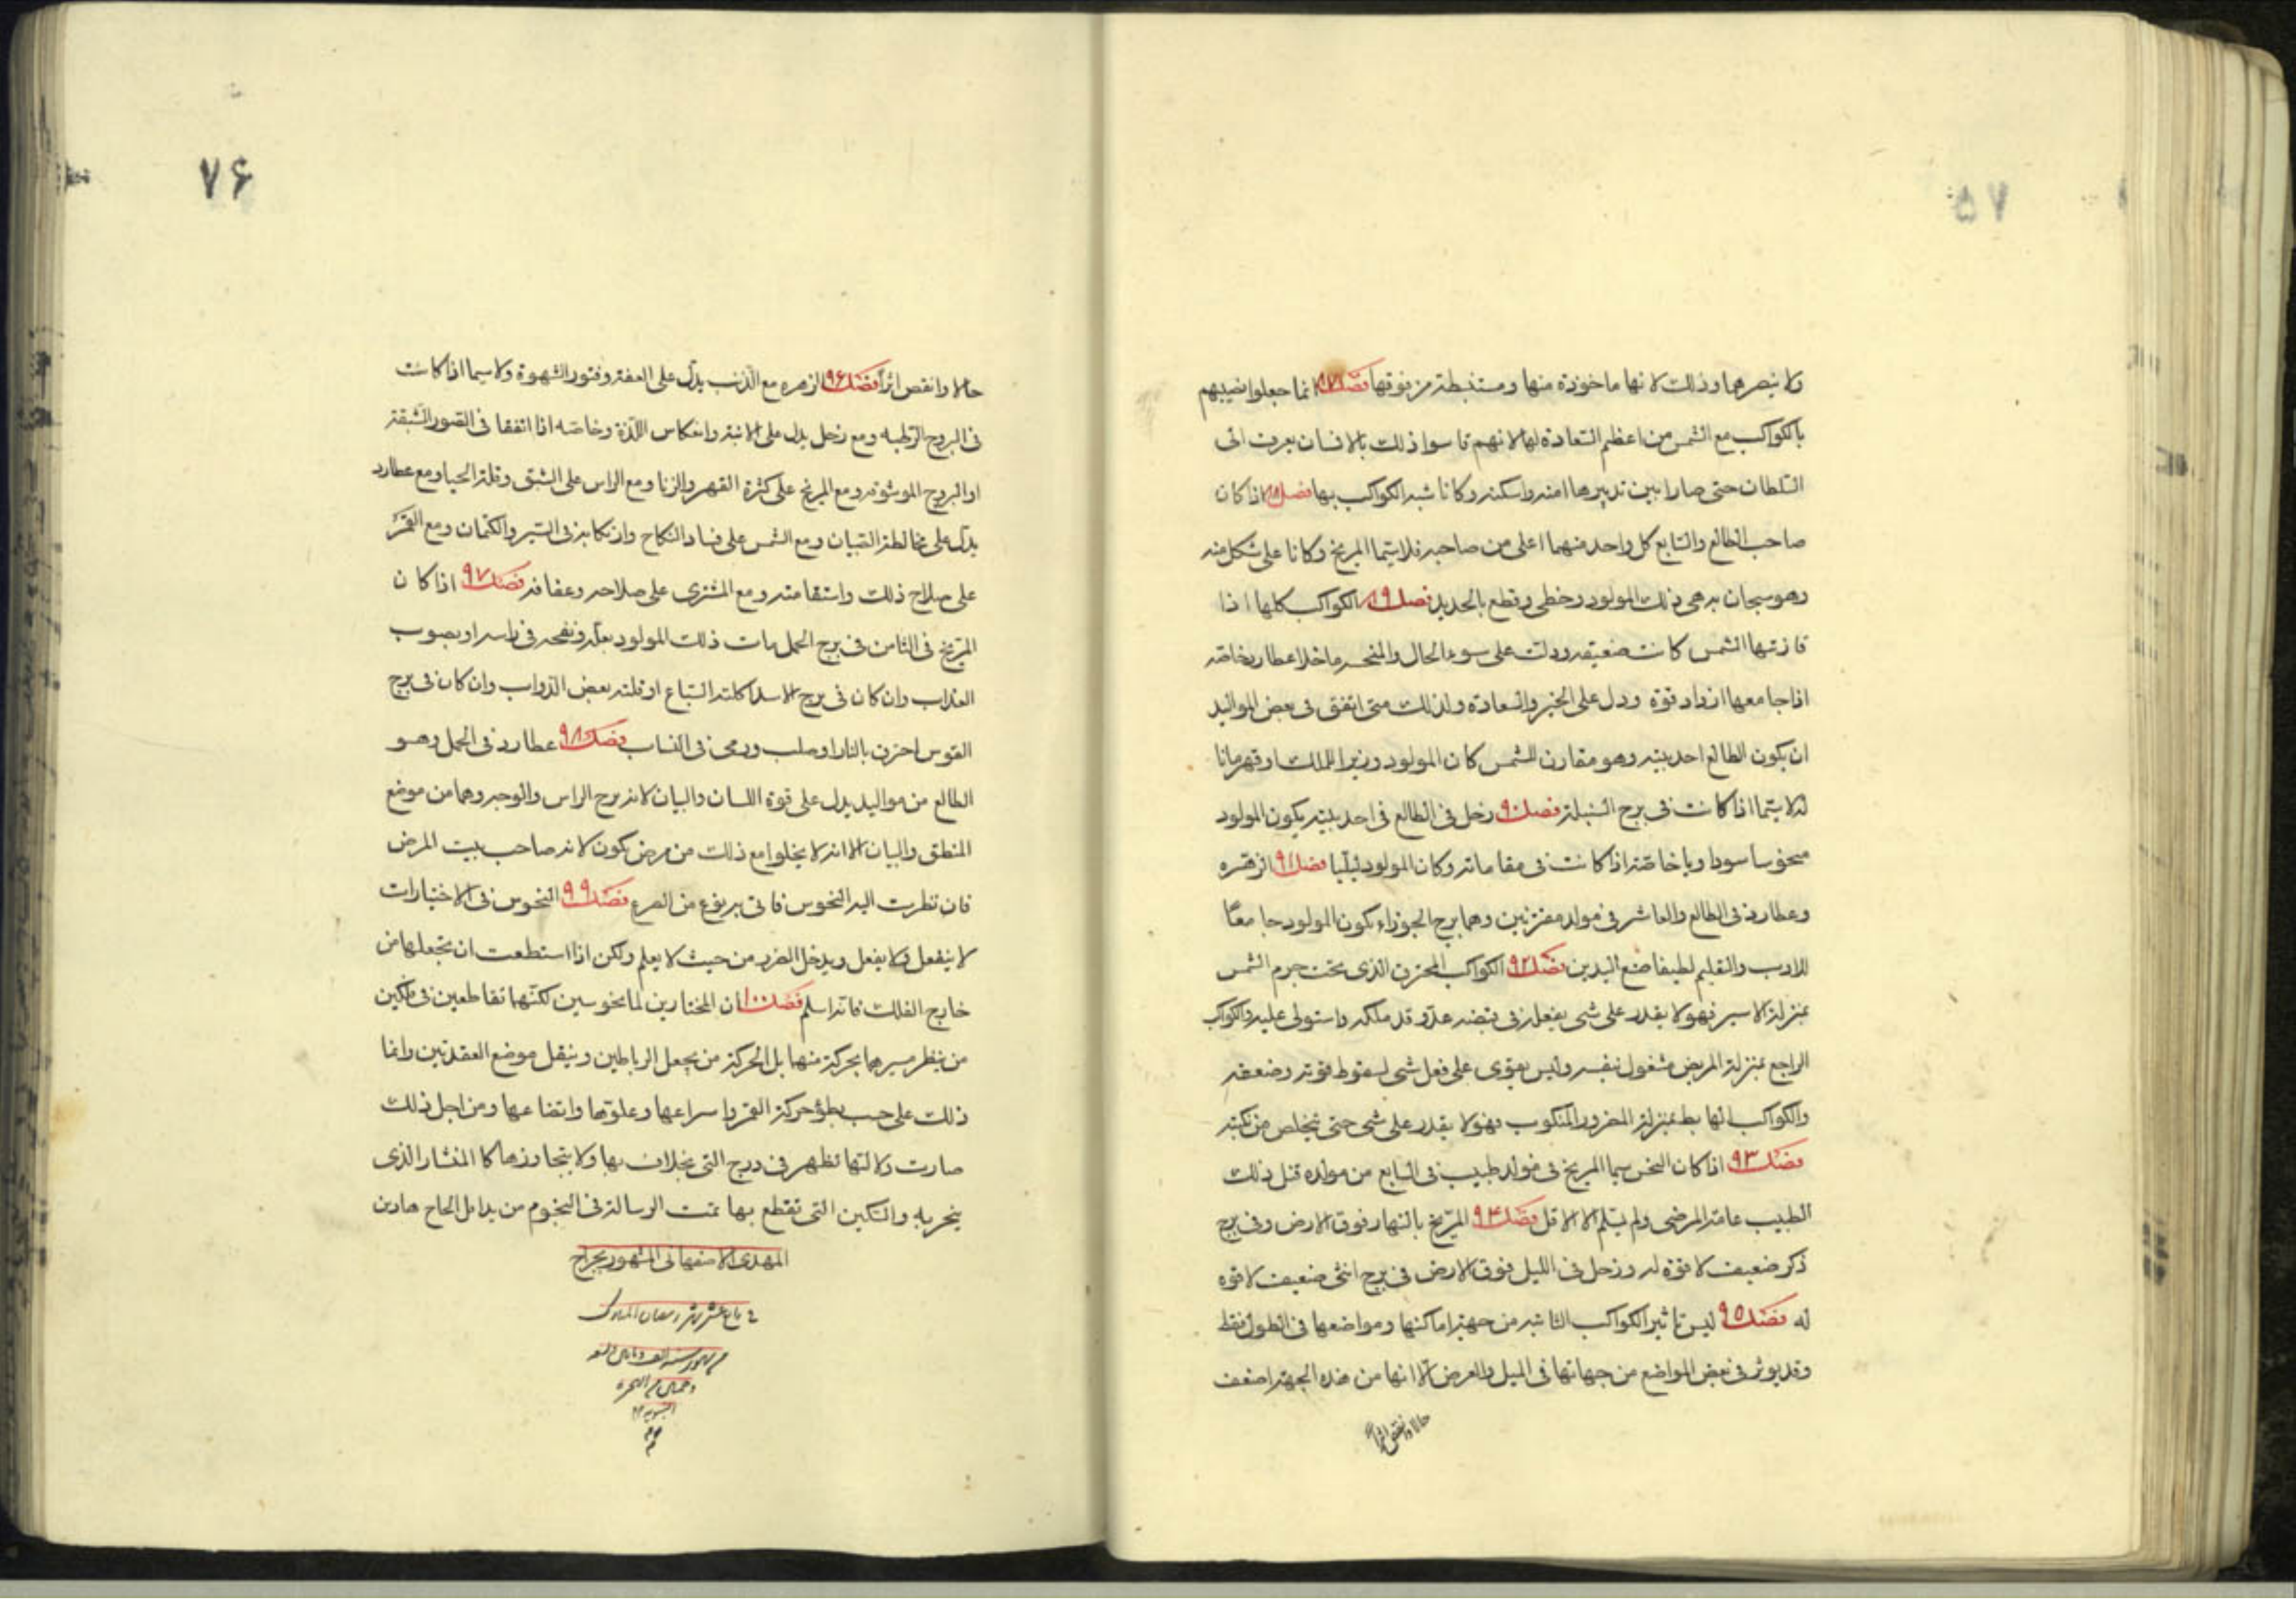 ولا ينصرهما وذلك لانها ماخوذة منها ومستنبطة من فوقها فصل ٨٧ انما جعلوا نصيبهم
بالكواكب مع الشمس من اعظم السعادة لها لانهم قاسوا ذلك بالانسان يعرف الى
السلطان حتى صارا بين تدبيرها امنه واسكنه وكانا شبه الكواكب بها فصل اذا كان
صاحب الطالع والسابع كل واحد منهما اعلى من صاحبه فلا سيما المريخ وكانا على شكل منه
وهو ذلك المولود وخطى وقطع بالحديد فصل ٨٩ الكواكب كلها اذا
قارنتها الشمس كانت ضعيفه ودلت على سوء الحال والمنحسه ماخلا عطارد خاصه
اذا جامعها ازداد قوة ودل على الخير والسعادة ولذلك متى اتفق فى بعض المواليد
ان يكون الطالع احد بيتيه وهو مقارن للشمس كان المولود وزيرا للملك او قهرمانا
له لا سيما اذا كانت فى برج السنبلة فصل ٩٠ زحل فى الطالع فى احد بيتيه يكون المولود
منحوسا سوداويا خاصة اذا كانت فى مقاماته وكان المولود ليليا فصل ٩١ الزهره
وعطارد فى الطالع والعاشر فى مولد مقترنين وهما برج الجوزاء يكون المولود جامعا
للادب والتعليم لطيفا صنع اليدين فصل ٩٢ الكواكب المحترق الذى تحت جرم الشمس
بمنزلة الاسير فهو لا يقدر على شى يفعله فى قبضه عدو قد ملكه واستولى عليه والكواكب
الراجع بمنزلة المريض مشغول بنفسه وليس يقوى على فعل شى لسقوط قوته وضعفه
والكواكب الهابط بمنزلة المضرور المنكوب فهو لا يقدر على شى حتى يتخلص من نكبته
فصل ٩٣ اذا كان النحس سيما المريخ فى مولد طبيب فى السابع من مولده قتل ذلك
الطبيب عامة المرضى ولم يسلم الا الاقل فصل ٩٤ المريخ بالنهار فوق الارض وفى برج
ذكر ضعيف لا قوة له وزحل فى الليل فوق الارض فى برج انثى ضعيف لا قوه
له فصل ٩٥ ليس تاثير الكواكب الثابته من جهة اماكنها ومواضعها فى الطول فقط
وقد يوثر فى بعض المواضع من جهاتها فى الميل والعرض الا انها من هذه الجهة اضعف
حالا وانقص اثراً
٧٦
حالا وانقص اثراً فصل ٩٦ الزهره مع الذنب يدل على العفة وفتور الشهوة ولا سيما اذا كانت
فى البروج الرطبه ومع زحل يدل على الابنة وانعكاس اللذة وخاصه اذا اتفقا فى الصور الشبقة
او البروج الموشومه ومع المريخ على كثرة القهر والزنا ومع الراس على الشبق وقلة الحيا ومع عطارد
يدل على مخالطة الصبيان ومع الشمس على فساد النكاح وارتكابه فى الستر والكتمان ومع القمر
على صلاح ذلك واستقامته ومع المشترى على صلاحه وعفافه فصل ٩٧ اذا كان
المريخ فى الثامن فى برج الحمل مات ذلك المولود بعلة فى راسه او بصوب
العذاب وان كان فى برج الاسد اكلته السباع او قتلته بعض الدواب وان كان فى برج
القوس احرق بالنار او صلب ورمى فصل ٩٨ عطارد فى الحمل وهو
الطالع من مواليد يدل على قوة اللسان والبيان لانه برج الراس والوجه وهما من موضع
المنطق والبيان الا انه لا يخلوا مع ذلك من مرض يكون لانه صاحب بيت المرض
فان نظرت اليه النحوس من الصرع فصل ٩٩ النحوس فى الاختيارات
لا ينفعل ولا يفعل ويدخل الضرر من حيث لا يعلم ولكن اذا استطعت ان تجعلها من
خارج الفلك فانه اسلم فصل ١٠٠ ان المختارين لما نحوسين لكنهما تقاطعين فى فلكين
من ينظر مسيرهما بحركة منها بل الحركة من يجعل الرباطين وينقل موضع العقدتين وانما
ذلك على حسب بطؤ حركة القمر واسراعها وعلوها واتضاعها ومن اجل ذلك
صارت دلالتها تظهر فى درج التى بها ولا يتجاوزها كا المنشار الذى
ينجر به والسكين التى تقطع بها تمت الرسالة فى النجوم من يد اقل الحاج هادى
المهدى الاصفهانى المشهور بجراح
فى عشر شهر رمضان المبارك
من شهور سنه الف و
من الهجرة
النبويه
م